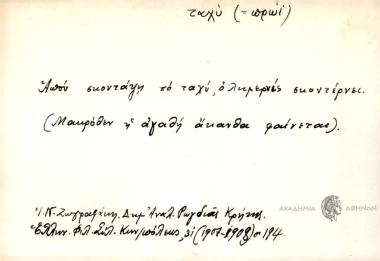 ταχύ (= πρωί)
Ἀπού σκοντάψῃ τό ταχύ, ὁλημερνίς σκοντέρνει.
(Μακρόθεν ἡ ἀγαθή ἄκανθα φαίνεται).
Ἰ. Κ. Ζωγραφάκη, Δημ. Ἀνάλ. Ρωγδιᾶς Κρήτης.
Ἑλλην. Φιλ. Σύλ. Κων/πόλεως, 31 (1907-1908) σ. 194
ΑΚΑΔΗΜΙΑ ΑΘΗΝΩΝ